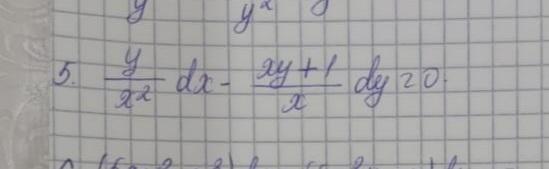 y y²
5. y/x² dx - (xy+1)/x dy = 0.